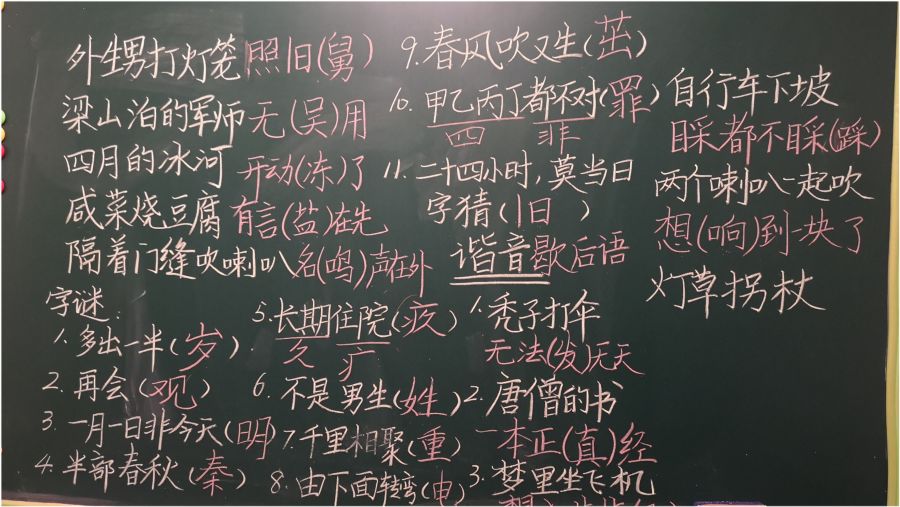 外甥打灯笼照旧(舅)
梁山泊的军师无(吴)用
四月的冰河 开动(冻)了
咸菜烧豆腐 有言(盐)在先
隔着门缝吹喇叭名(鸣)声在外
字谜:
1.多出一半(岁)
2.再会(观)
3.一月一日非今天(明)
4.半部春秋(秦)
5.长期住院(疚)
久 疒
6.不是男生(姓)
7.千里相聚(重)
8.由下面转弯(电)
9.春风吹又生(茁)
10.甲乙丙丁都不对(罪)
四 非
11.二十四小时,莫当日
字猜(旧)
谐音歇后语
1.秃子打伞
无法(发)无天
2.唐僧的书
一本正(直)经
3.梦里坐飞机
自行车下坡
睬都不睬(踩)
两个喇叭一起吹
想(响)到一块了
灯草拐杖